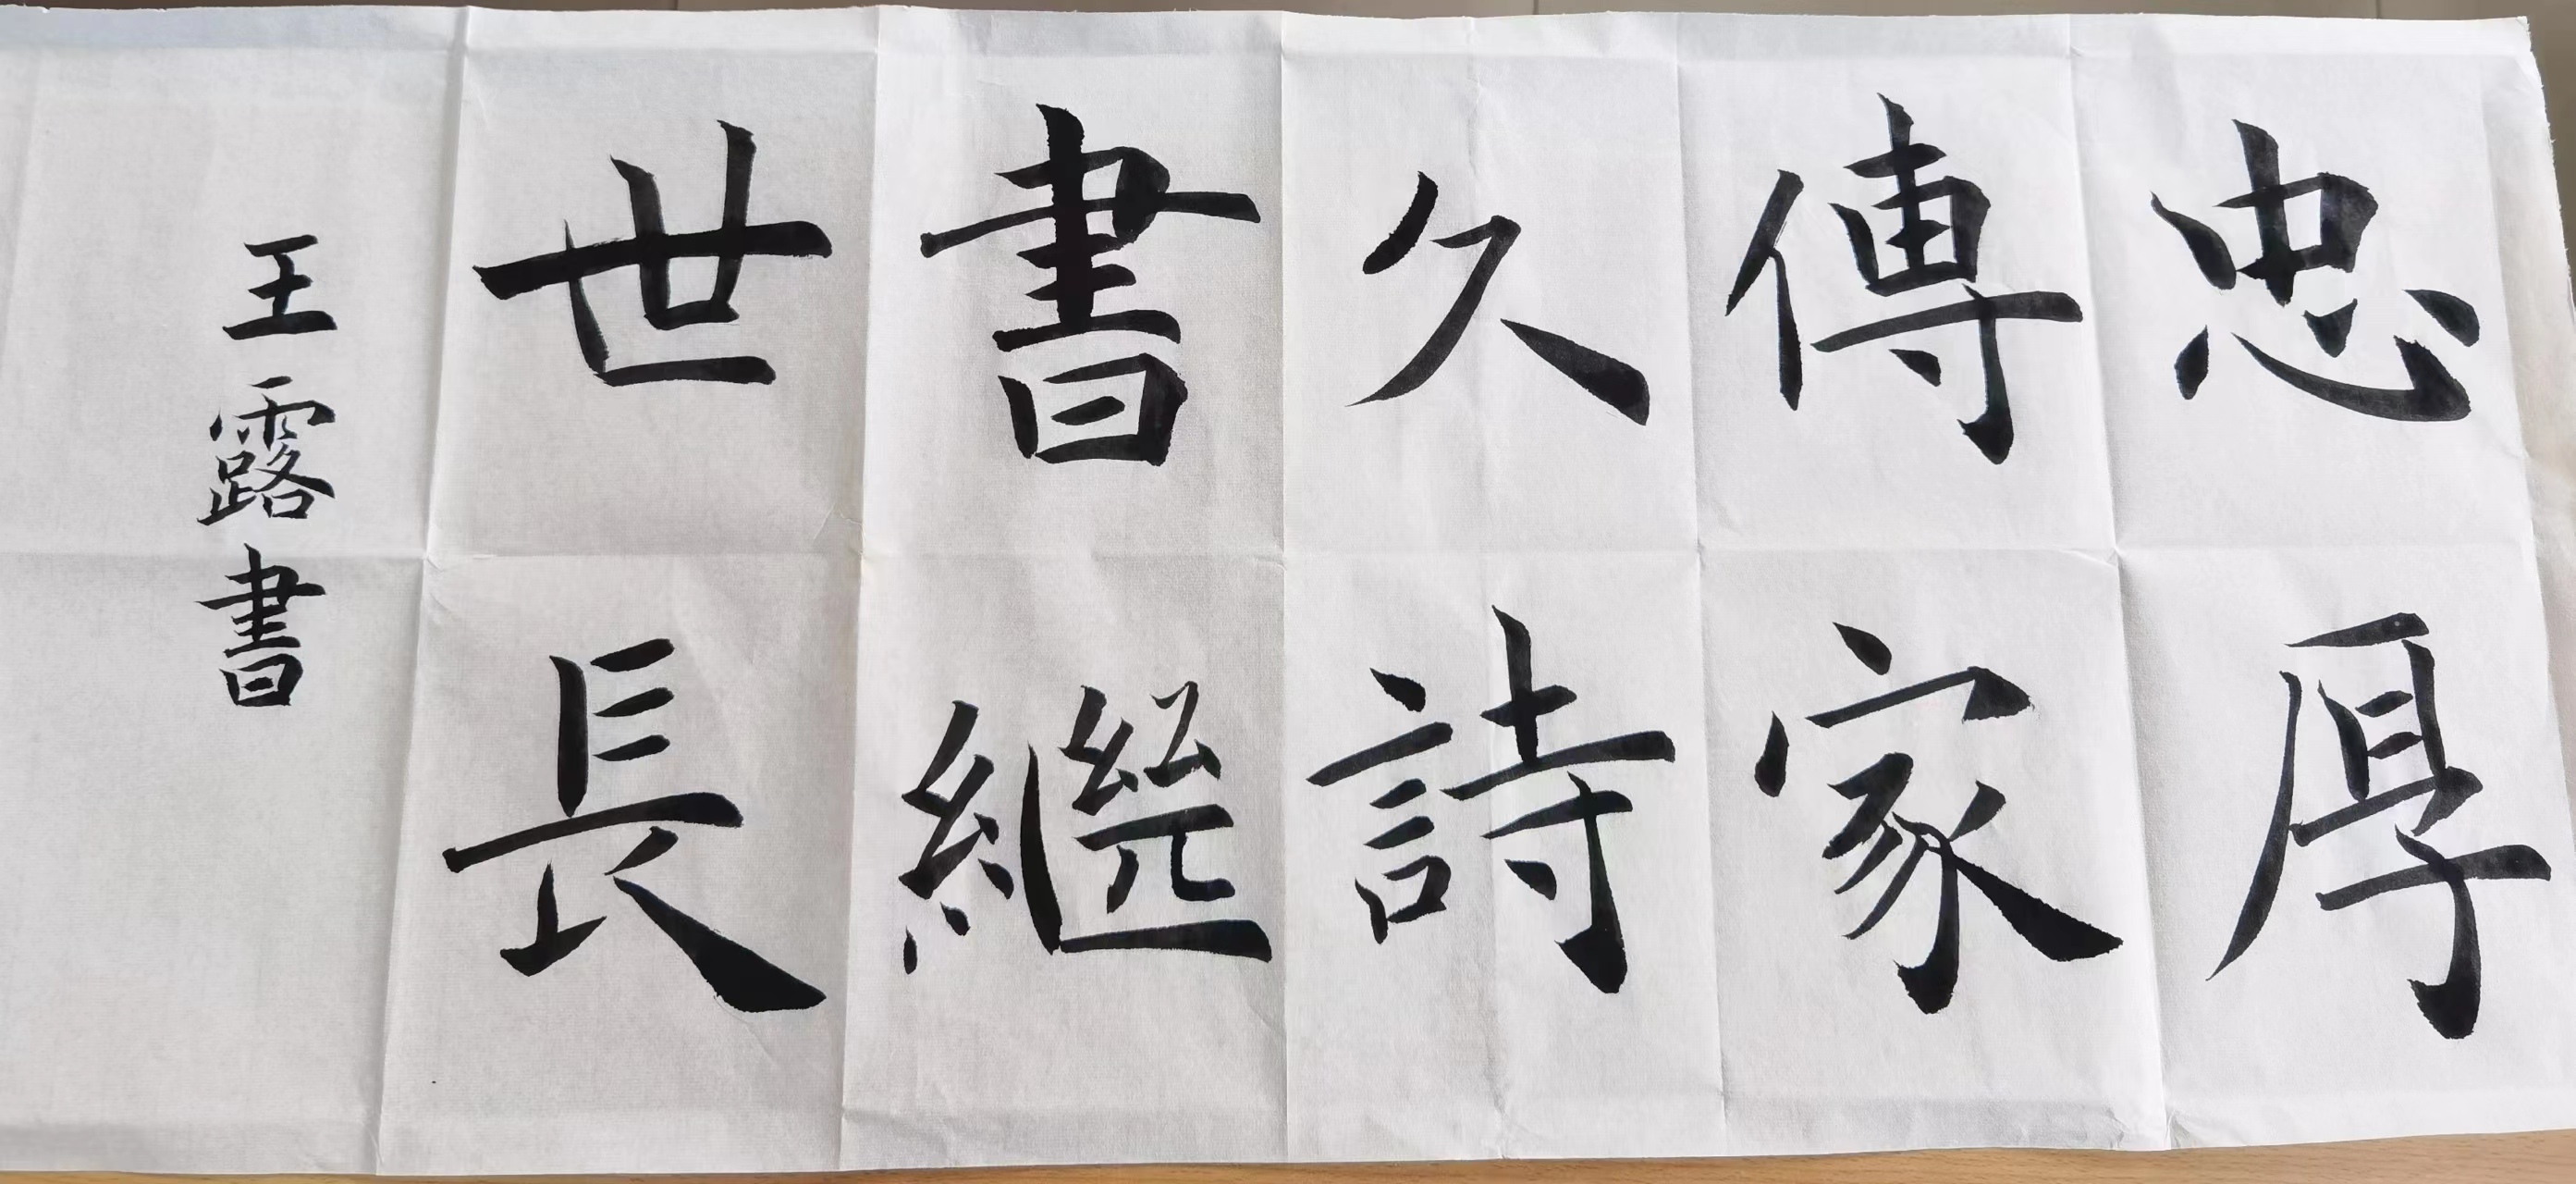 忠厚
傳家
久詩
書繼
世長
王露書